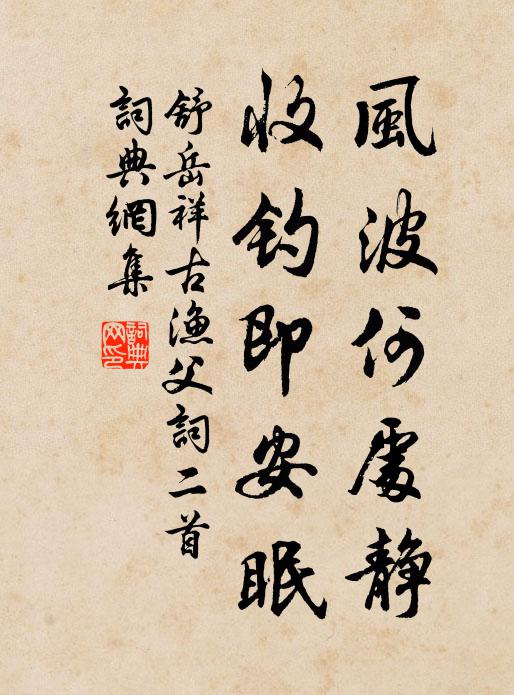 風波何處静
收釣即安眠
舒岳祥古漁父詞二首
詞典網集
詞典网印